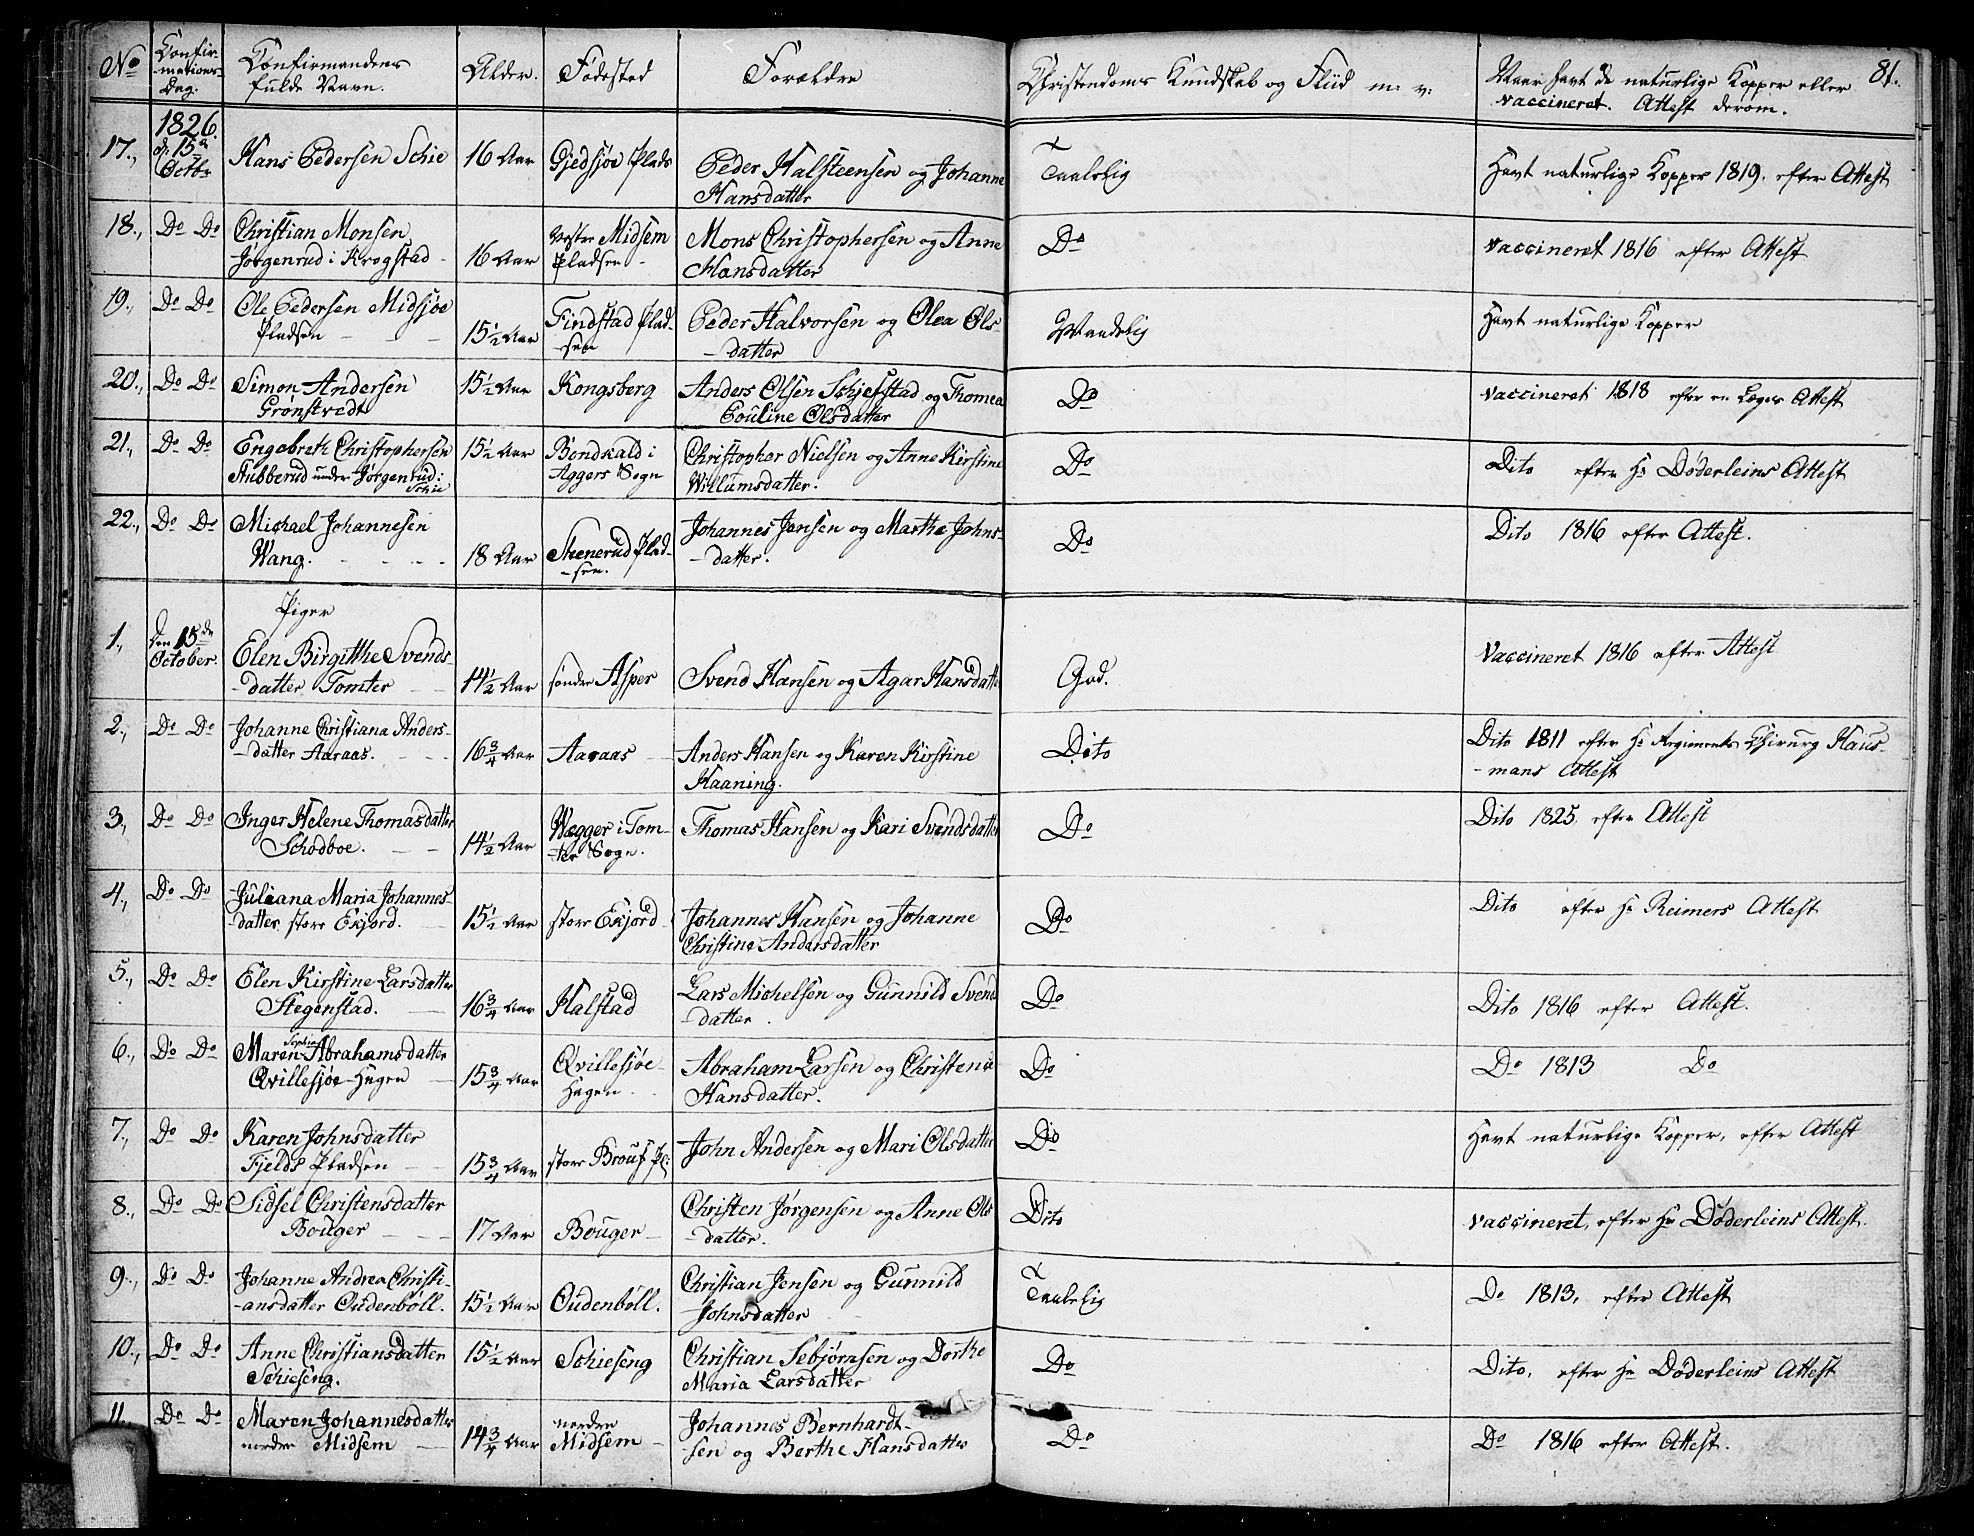 No Confir- Confirmandens Alder. Fødested Forældre Christendoms Kundskab og Fliid m: v: Naar havt de naturlige Kopper eller 81.
-mations- fulde Navn. vaccineret. Attest derom.
Dag.
1826.
17., d: 15de Hans Pedersen Schie 16 Aar Gjedsjøe Plads Peder Halsteensen og Johanne Taalelig Havt naturlige Kopper 1819. efter Attest
Octbr Hansdatter
18., Do Do Christian Monsen Vestre Midsem Mons Christophersen og Anne Do vaccineret 1816 efter Attest
Jørgenrud i Krogstad - 16 Aar Pladsen - Hansdatter
19., Do Do Ole Pedersen Midsjøe Findstad Plad- Peder Halvorsen og Olea Ols Maadelig Havt naturlige Kopper
Pladsen - - 15½ Aar -sen -datter
20., Do Do Simon Andersen 15½ Aar Kongsberg Anders Olsen Schjefstad og Thomea Do vaccineret 1818 efter en Læges Attest
Grønstvedt Pouline Olsdatter
21., Do Do Engebreth Christophersen 15½ Aar Bondkald i Christopher Nielsen og Anne Kirstine Do Dito efter Hr Døderleins Attest
Stubberud under Jørgenrud i Aggers Sogn Willumsdatter.
Schie
22., Do Do Michael Johannesen Johannes Jensen og Marthe Johns- Do Dito 1816 efter Attest.
Wang. - - - - 18 Aar Skenerud Plad- -datter.
-sen.
Piger
1., Den 15de Elen Birgitthe Svends- Vaccineret 1816 efter Attest
October. -datter Tomter - - 14½ Aar søndre Asper Svend Hansen og Agar Hansdatter God.
2., Do Do Johanne Christiana Anders- Dito 1811 efter Hr Regiments Chirurg Haus-
-datter Aaraas. - - - 16¾ Aar Aaraas - Anders Hansen og Karen Kirstine Dito -mans Attest
Haaning.
3., Do Do Inger Helene Thomasdatter Wegger i Tom- Thomas Hansen og Kari Svendsdatter Do Dito 1825. efter Attest
Schodboe. - - 14½ Aar -ter Sogn.
4., Do Do Juliana Maria Johannes- Dito efter Hr Reimers Attest
-datter store Exjord. - 15½ Aar store Exjord - Johannes Hansen og Johanne Do
Christine Andersdatter
5., Do Do Elen Kirstine Larsdatter Lars Michelsen og Gunnild Svend Do Dito 1816 efter Attest.
Stegenstad. - 16¾ Aar Halstad -datter.
6., Do Do Maren Sophie Abrahamsdatter Qvillesjøe- Abraham Larsen og Christense Do Do 1813 Do
Qvillesjøe-Hagen - 15¾ Aar Hagen - Hansdatter.
7., Do Do Karen Johnsdatter John Andersen og Mari Olsdatter Do Havt naturlige Kopper, efter Attest
Fjelds Pladsen - - 15¾ Aar store Brous Pl:
8., Do Do Sidsel Christensdatter Christen Jørgensen og Anne Ols Dito vaccineret, efter Hr Døderleins Attest.
Bouger - 17 Aar Bouger - -datter.
9., Do Do Johanne Andrea Christi- Christian Jensen og Gunnild Taalelig Do 1813, efter Attest
-ansdatter Oudenbøll. 15½ Aar Oudenbøll. Johnsdatter
10., Do Do Anne Christiansdatter 15½ Aar Schieseng Christian Sebjørnsen og Dorthe Do Dito, efter Hr Døderleins Attest
Schieseng. Maria Larsdatter
11 Do Do Maren Johannesdatter nordre Johannes Bernhardt- Do Do 1816 efter Attest.
nordre Midsem - 14¾ Aar Midsem - -sen og Berthe Hansdatter